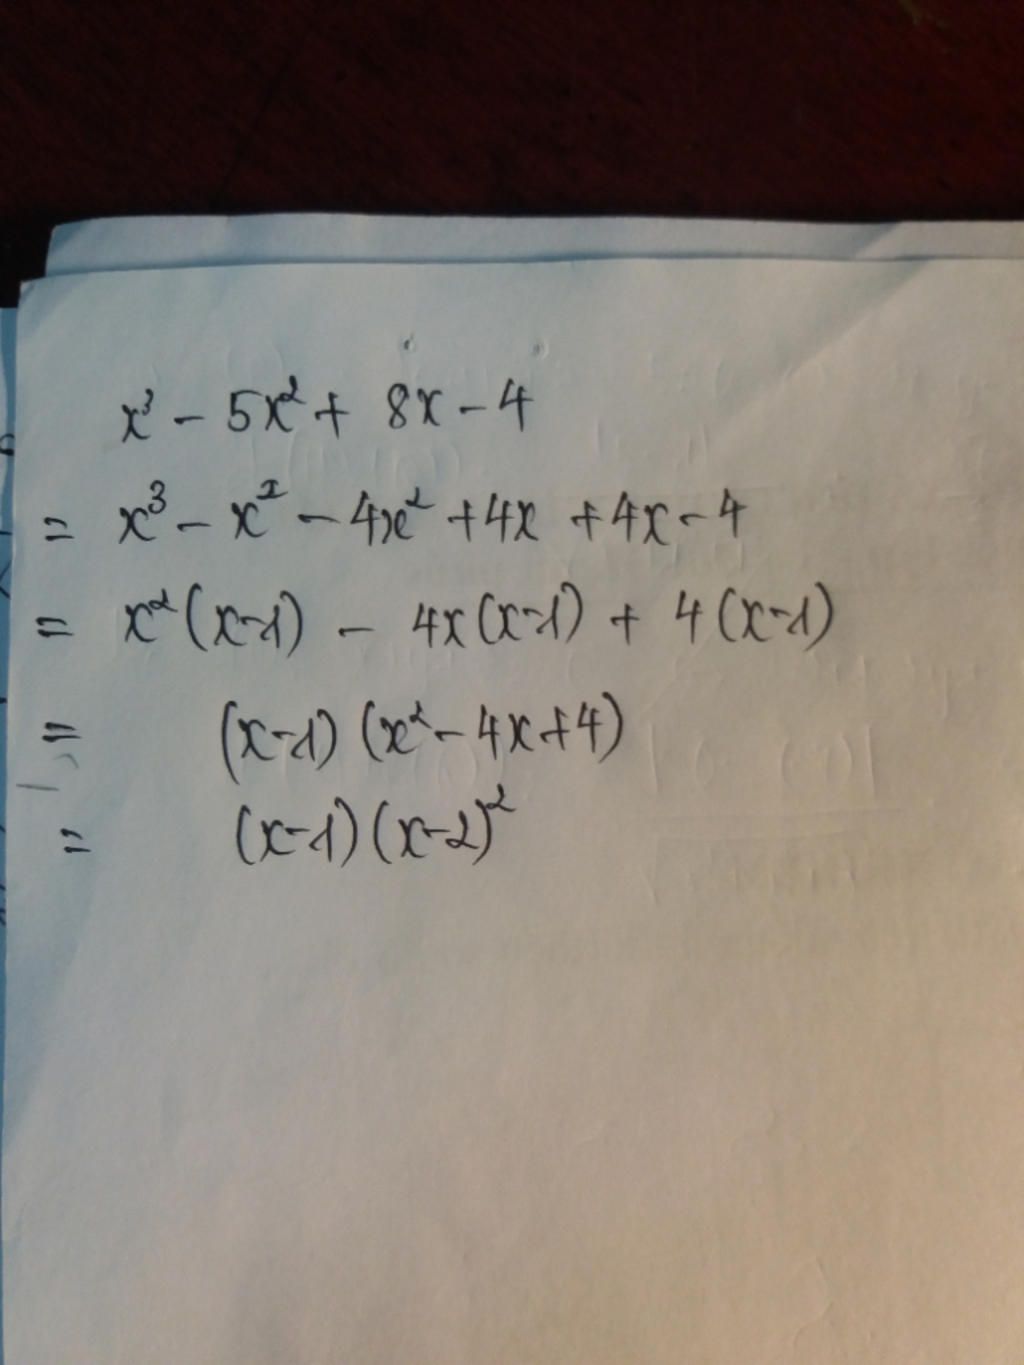 x³ - 5x² + 8x - 4
= x³ - x² - 4x² + 4x + 4x - 4
= x² (x-1) - 4x (x-1) + 4 (x-1)
= (x-1) (x² - 4x + 4)
= (x-1) (x-2)²